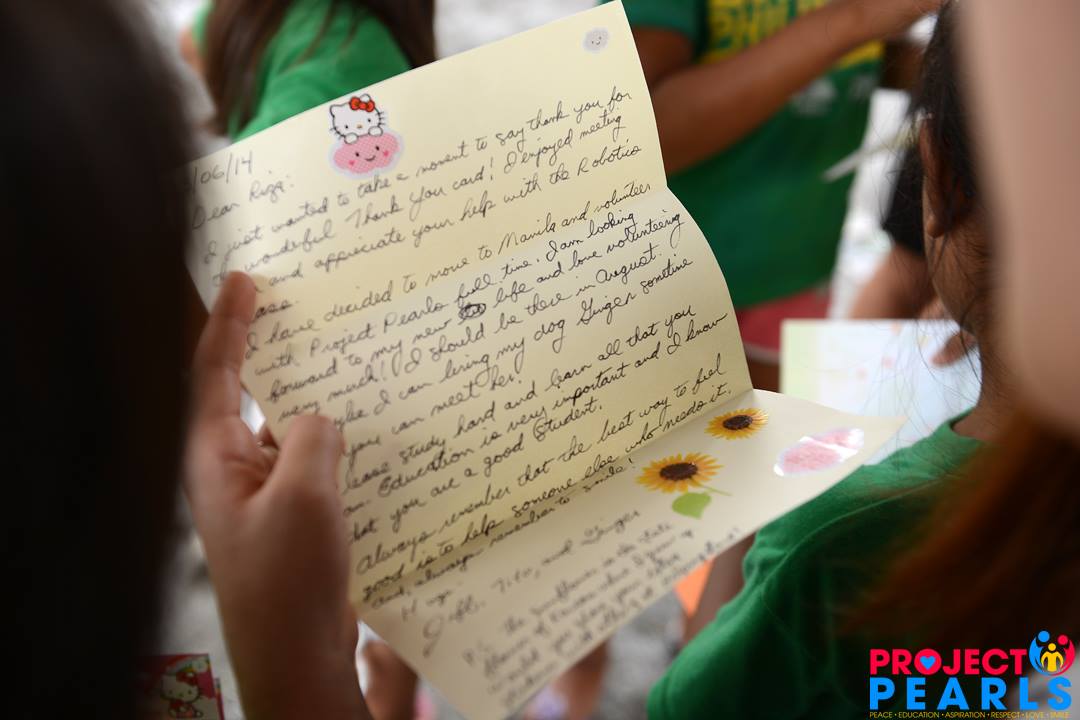 /06/14
Dear Riza:
I just wanted to take a moment to say thank you for
wonderful Thank you card! I enjoyed meeting
and appreciate your help with the Robotics
ass.
I have decided to move to Manila and volunteer
with Project Pearls full time. I am looking
forward to my new life and love volunteering
very much! I should be there in August.
ybe I can bring my dog Ginger sometime
you can meet her.
ease study hard and learn all that you
an. Education is very important and I know
that you are a good student.
Always remember that the best way to feel
good is to help someone else who needs it.
and, always remember to smile!
Hugs,
Tito, and Ginger
P.S. the sunflower is the state
flower of Kansas
PROJECT
PEARLS
PEACE • EDUCATION • ASPIRATION • RESPECT • LOVE • SMILE